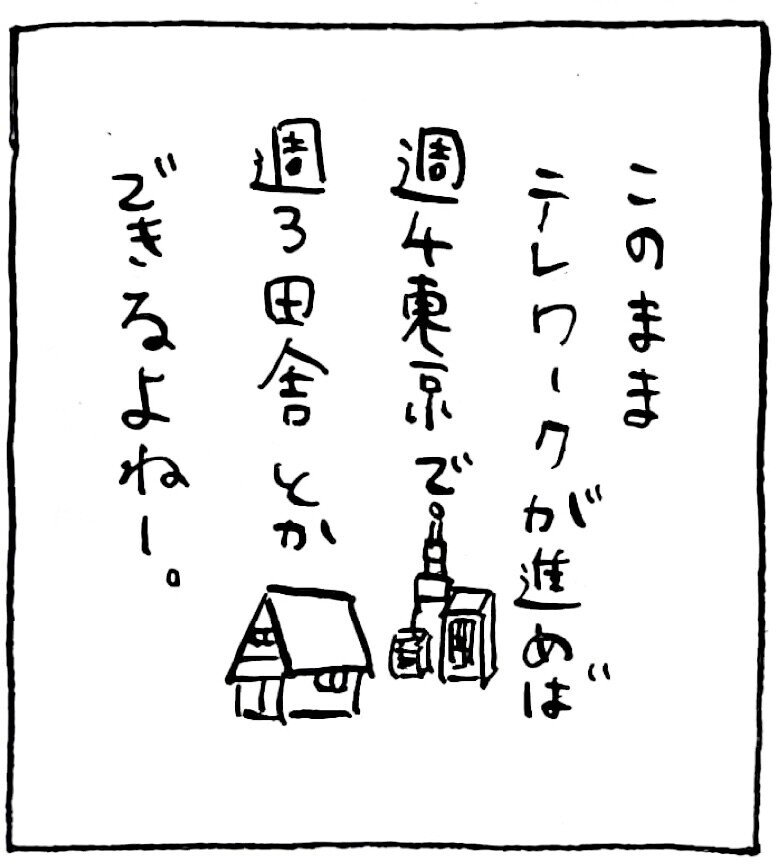 このまま
テレワークが進めば
週4東京で
週3田舎とか
できるよねー。